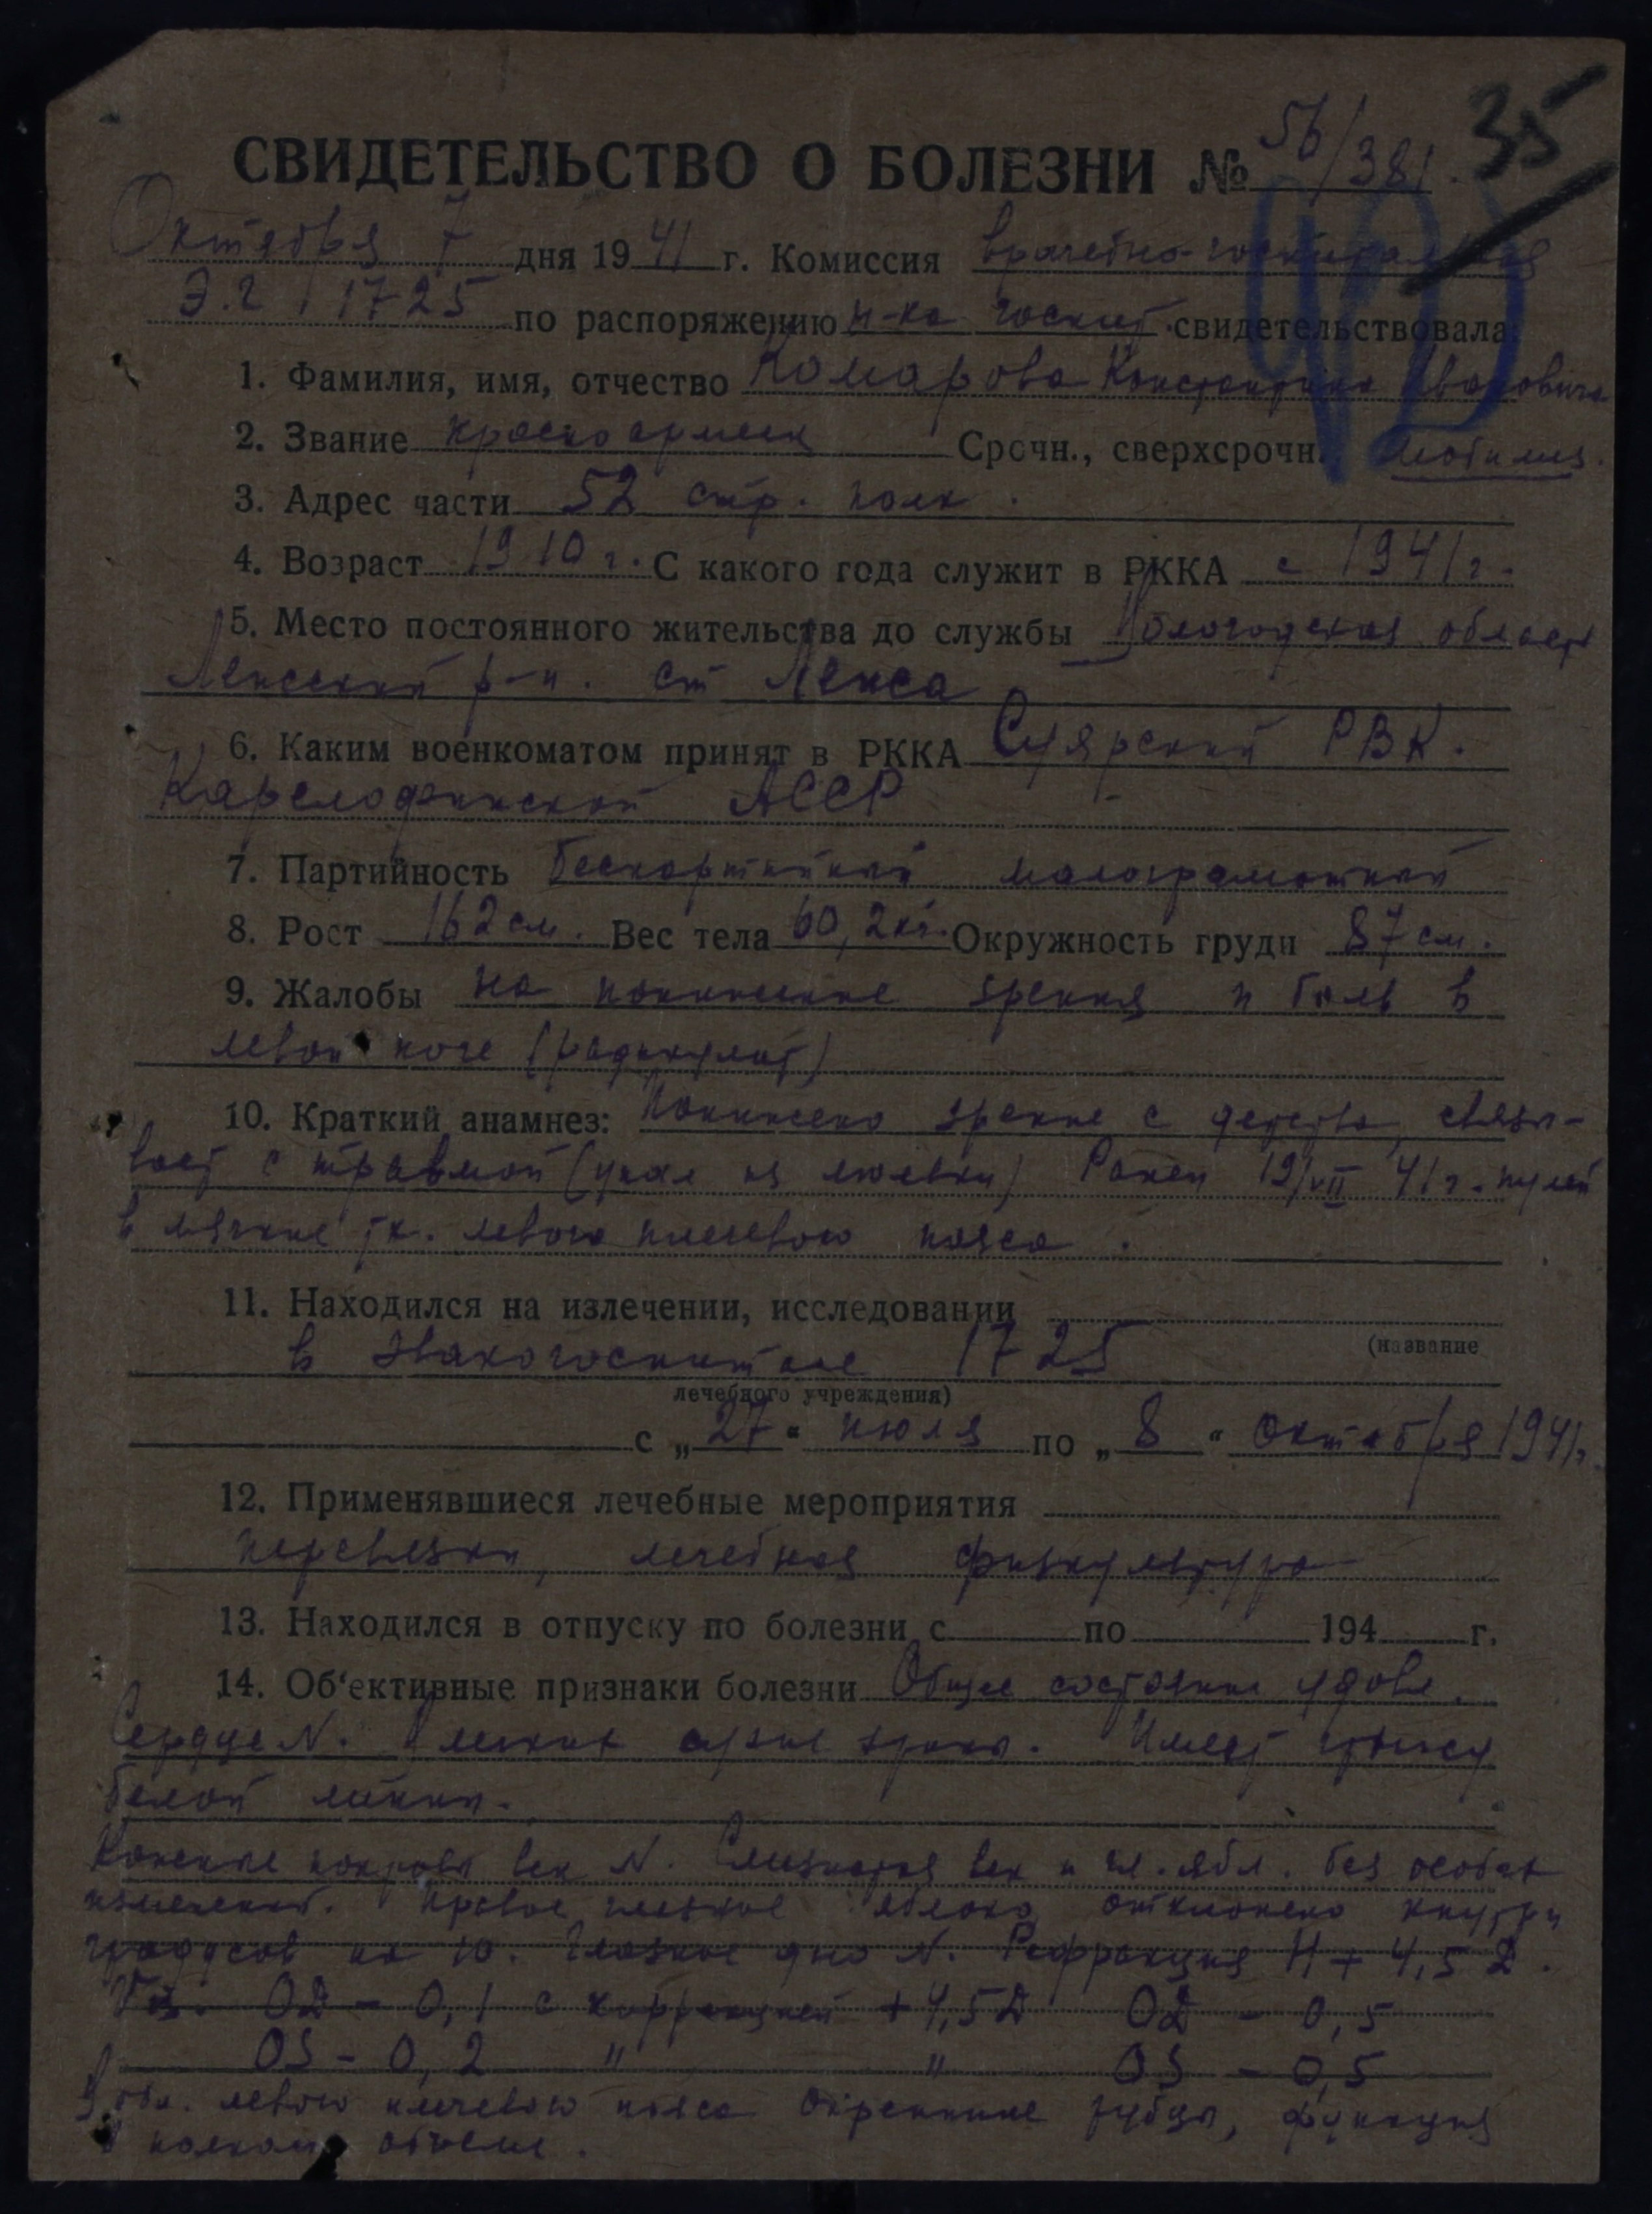 35
СВИДЕТЕЛЬСТВО О БОЛЕЗНИ № 56/381.
Октября 7 дня 1941 г. Комиссия врачебно-госпитальная
Э.Г. 1725 по распоряжению н-ка госпит. свидетельствовала:
1. Фамилия, имя, отчество Комарова Константина Ивановича
2. Звание красноармеец Срочн., сверхсрочн. мобилиз.
3. Адрес части 52 стр. полк.
4. Возраст 1910 г. С какого года служит в РККА с 1941 г.
5. Место постоянного жительства до службы Вологодская область
р-н. ст
6. Каким военкоматом принят в РККА РВК.
Карелофинской АССР
7. Партийность беспартийный малограмотный
8. Рост 162 см. Вес тела 60,2 кг. Окружность груди 87 см.
9. Жалобы на понижение зрения и боль в
левой ноге (радикулит)
10. Краткий анамнез: Понижено зрение с детства, связы-
вает с травмой (упал из люльки) Ранен 12/VII 41 г. пулей
в мягкие тк. левого плечевого пояса.
11. Находился на излечении, исследовании
(название
в Эвакогоспитале 1725
лечебного учреждения)
с „27“ июля по „8“ октября 1941 г.
12. Применявшиеся лечебные мероприятия
перевязки, лечебная физкультура
13. Находился в отпуску по болезни с по 194 г.
14. Об‘ективные признаки болезни Общее состояние удовл.
Сердце N. В легких сухие хрипы. Имеет грыжу
белой линии.
Кожные покровы век N. Слизистая век и гл. ябл. без особых
изменений. Правое глазное яблоко отклонено кнутри
градусов на 10. Глазное дно N. Рефракция H + 4,5 D.
Vis. OD - 0,1 с коррекцией + 4,5 D OD - 0,5
OS - 0,2 " " OS - 0,5
В обл. левого плечевого пояса окрепшие рубцы, функция
в полном объеме.